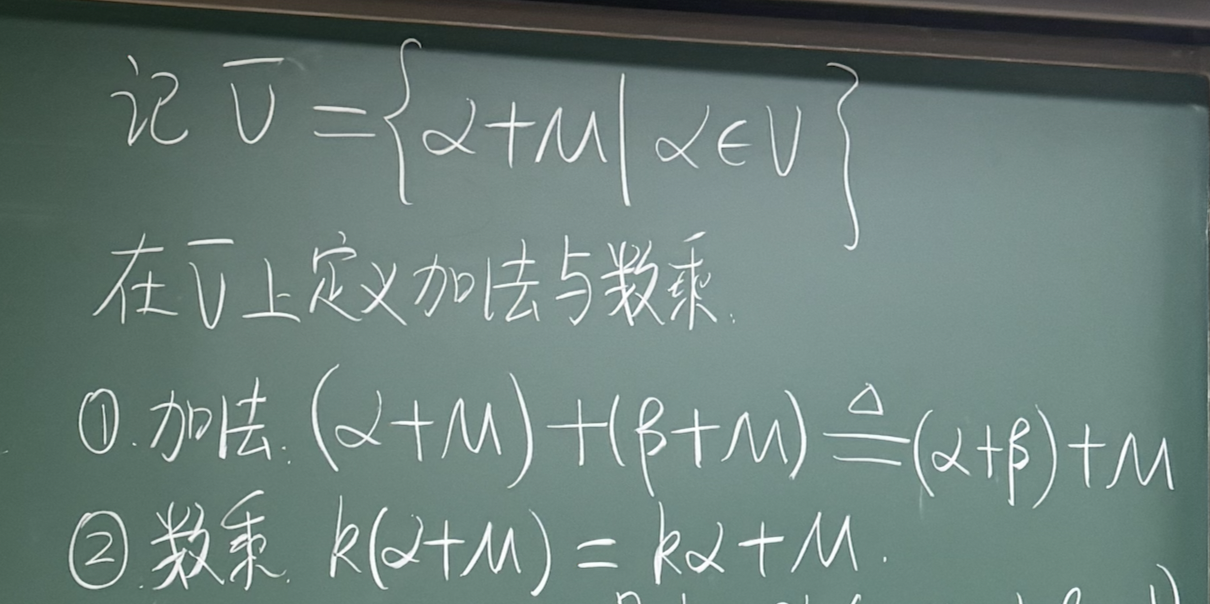 记 V̄ = {α+M | α∈V}
在V̄上定义加法与数乘.
①.加法:(α+M)+(β+M)≜(α+β)+M
②.数乘. k(α+M)=kα+M.